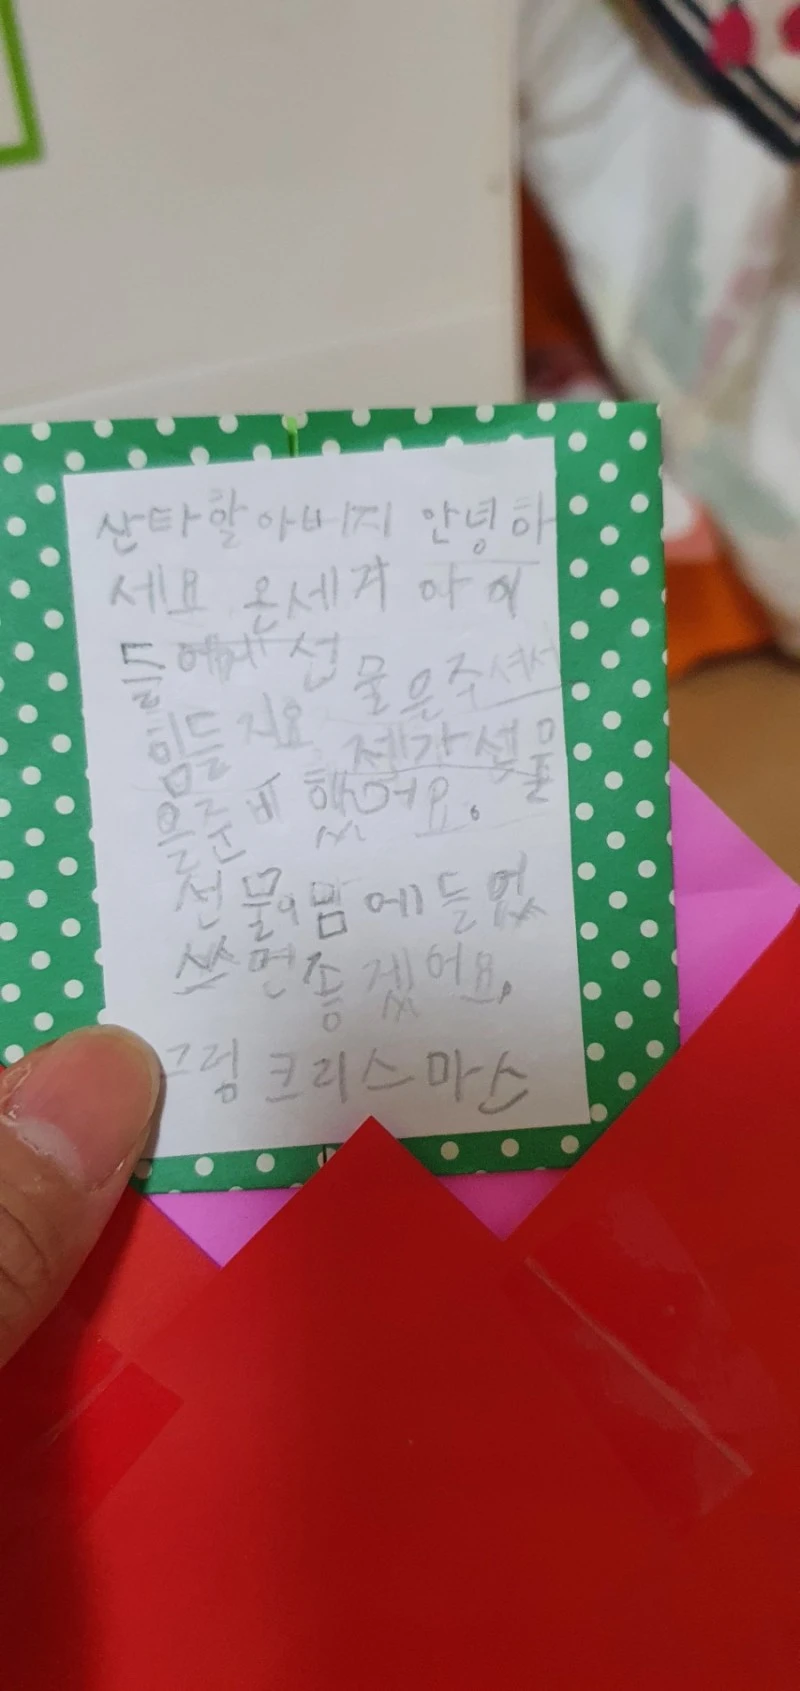 산타할아버지 안녕하
세요 온세계 아이
들에게 선물을주셔서
힘들지요 제가선물
을준비했어요.
선물이맘에들었
쓰면좋겠어요.
그럼 크리스마스